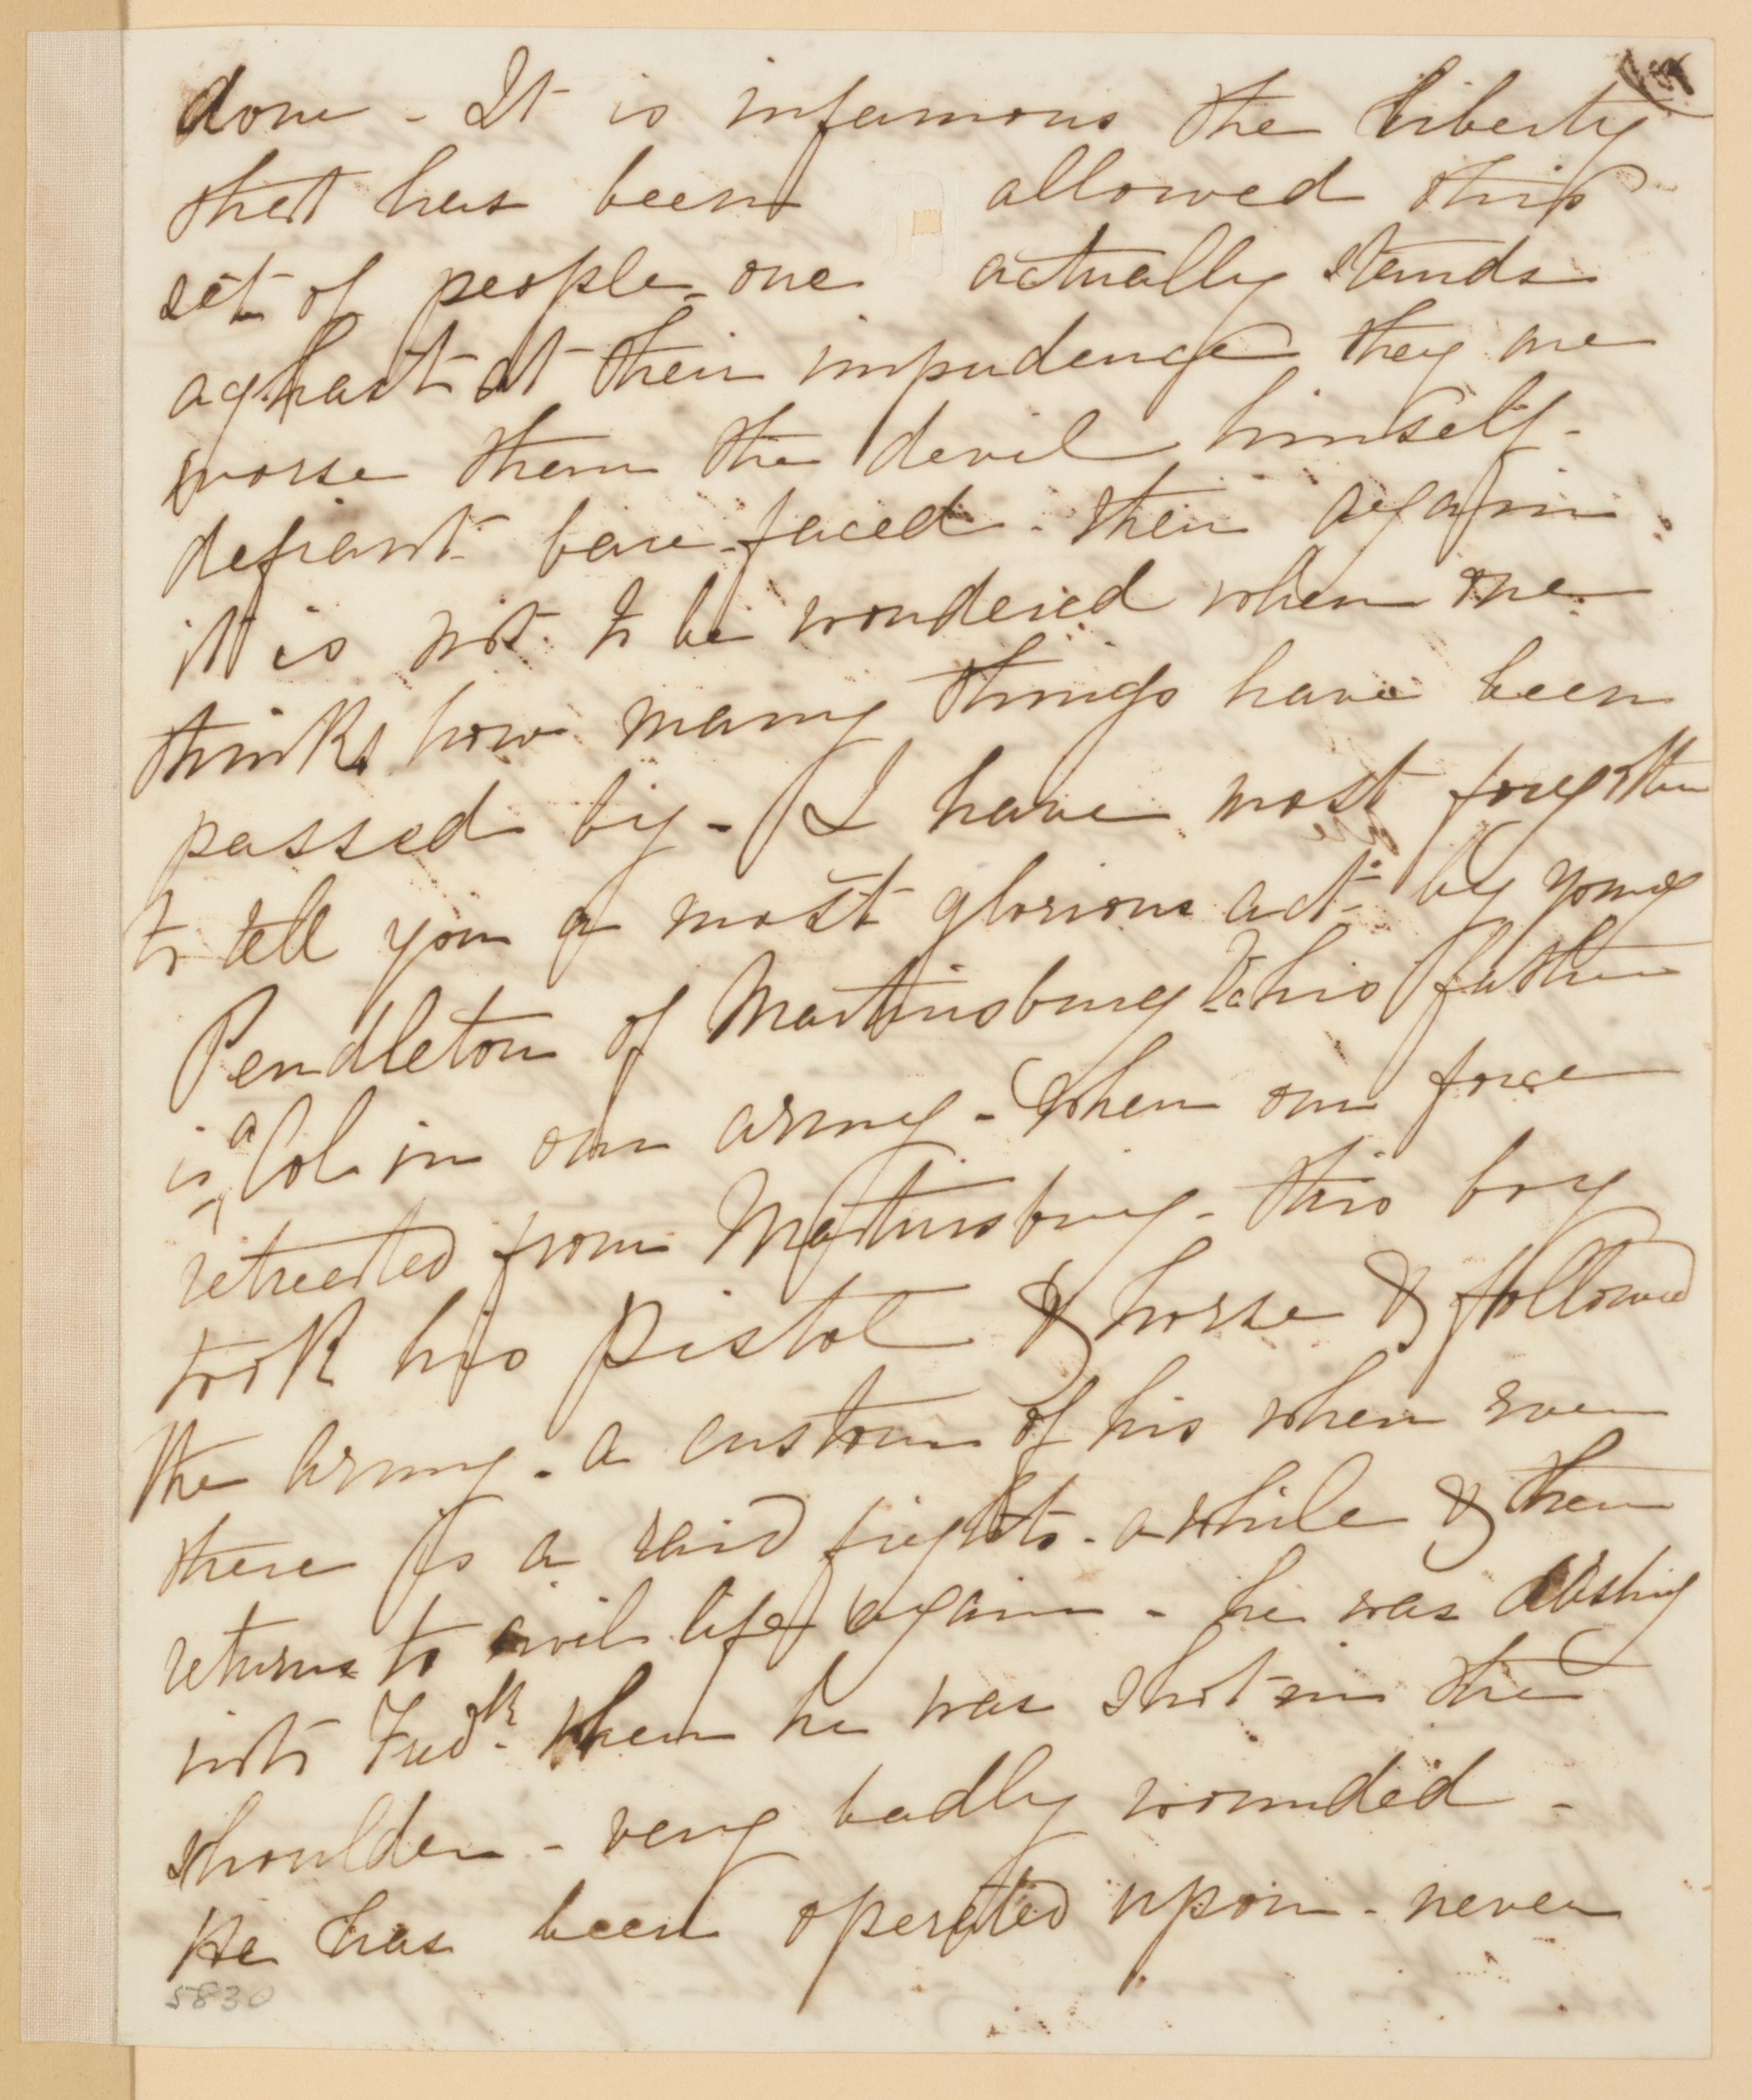 done - It is infamous the liberty
that has been allowed this
set of people - one actually stands
aghast at their impudence they are
worse than the devil himself -
defiant - bare-faced - then again
it is not to be wondered when one
thinks how many things have been
passed by - I have most forgotten
to tell you a most glorious act - by young
Pendleton of Martinsburg Va his father
is a Col in our army - when our force
retreated from Martinsburg - this boy
took his pistol & horse & followed
the army - a custom of his when ever
there is a raid fights - a while & then
returns to civil life again - he was dashing
into Fredk when he was shot in the
shoulder - very badly wounded -
He has been operated upon - never
5830